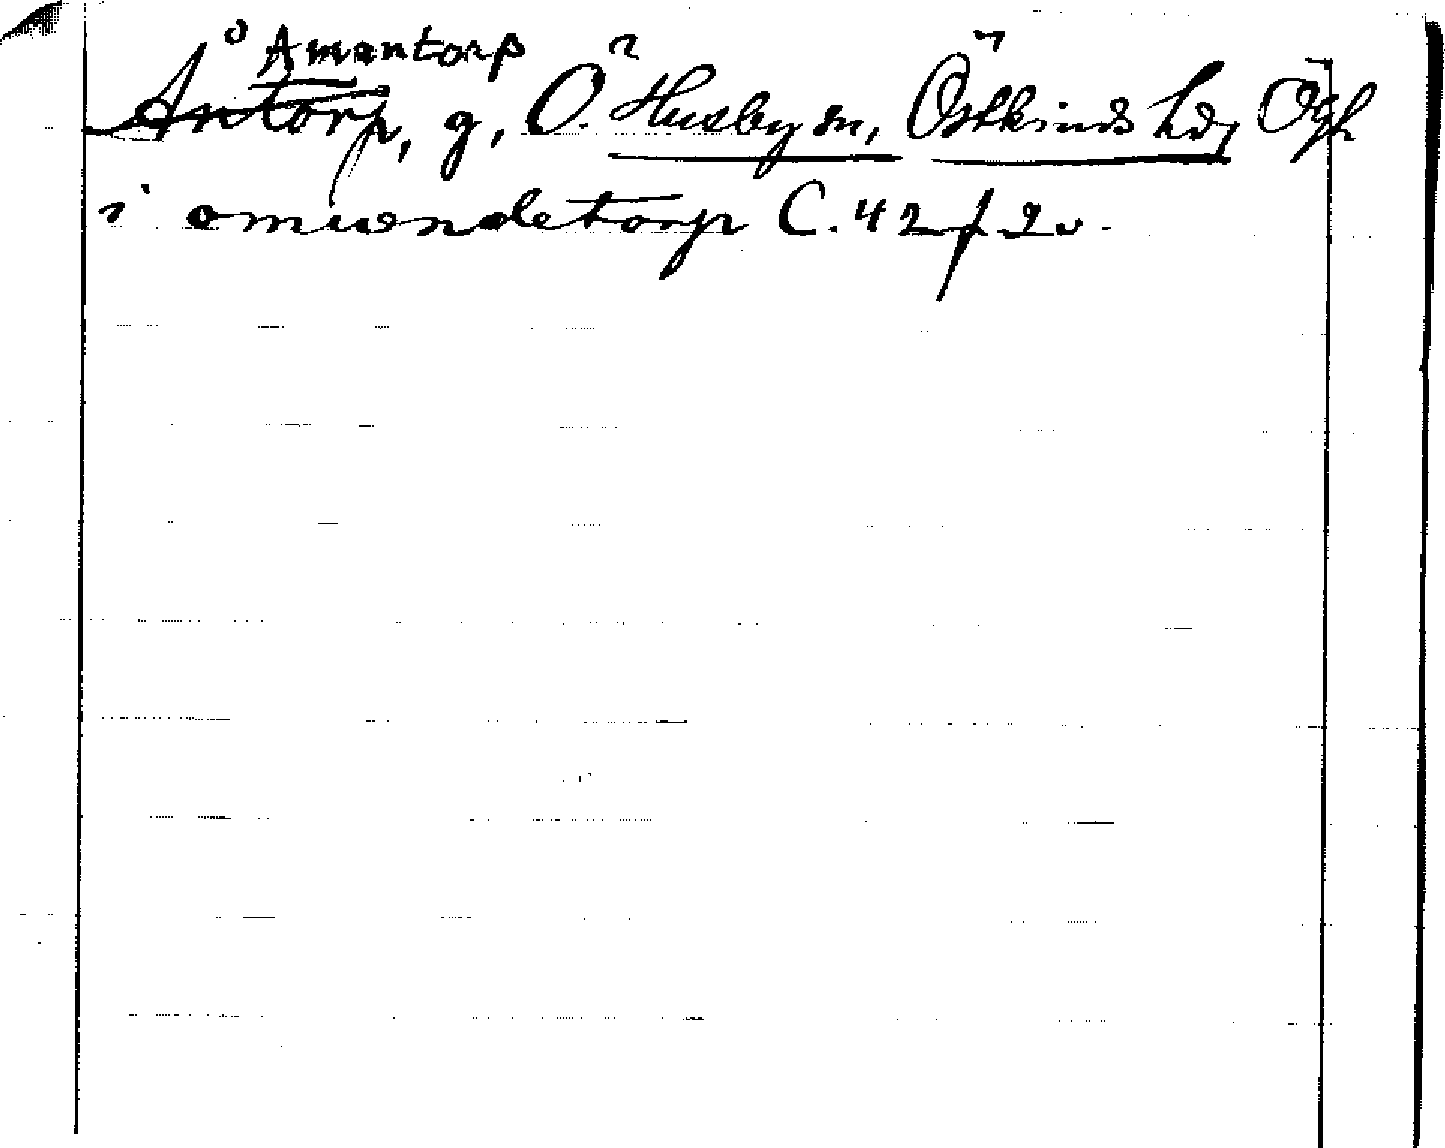 Åmantorp
Antorp, g, Ö. Husby sn, Östkinds hd, Ögl
i omuendetorp C. 42 f 20.